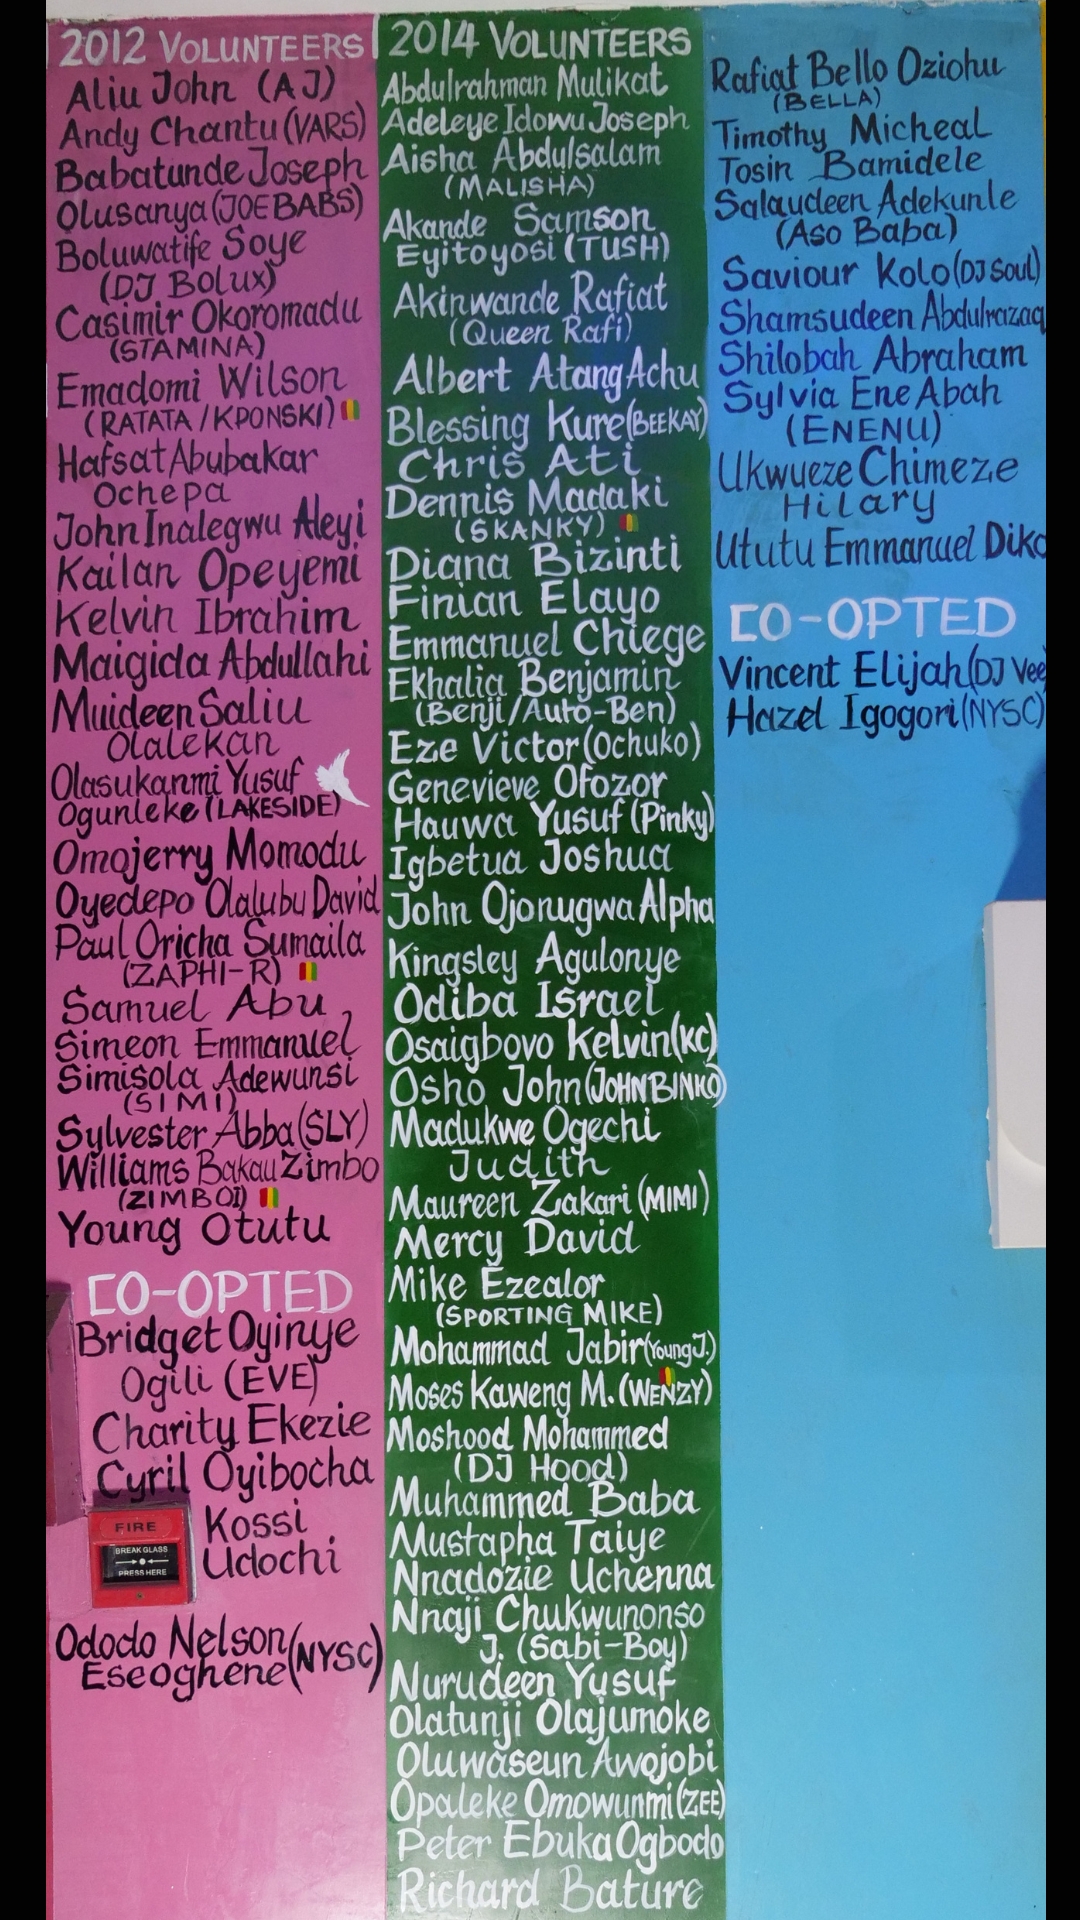 2012 VOLUNTEERS
Aliu John (AJ)
Andy Chantu (VARS)
Babatunde Joseph
Olusanya (JOE BABS)
Boluwatife Soye
(DJ Bolux)
Casimir Okoromadu
(STAMINA)
Emadomi Wilson
(RATATA / KPONSKI)
Hafsat Abubakar
Ochepa
John Inalegwu Aleyi
Kailan Opeyemi
Kelvin Ibrahim
Maigida Abdullahi
Muideen Saliu
Olalekan
Olasukanmi Yusuf
Ogunleke (LAKESIDE)
Omojerry Momodu
Oyedepo Olalubu David
Paul Oricha Sumaila
(ZAPHI-R)
Samuel Abu
Simeon Emmanuel
Simisola Adewunsi
(SIMI)
Sylvester Abba (SLY)
Williams Bakau Zimbo
(ZIMBOI)
Young Otutu
CO-OPTED
Bridget Oyinye
Ogili (EVE)
Charity Ekezie
Cyril Oyibocha
Kossi
Udochi
FIRE
BREAK GLASS
PRESS HERE
Ododo Nelson
Eseoghene (NYSC)
2014 VOLUNTEERS
Abdulrahman Mulikat
Adeleye Idowu Joseph
Aisha Abdulsalam
(MALISHA)
Akande Samson
Eyitoyosi (TUSH)
Akinwande Rafiat
(Queen Rafi)
Albert Atang Achu
Blessing Kure (BEEKAY)
Chris Ati
Dennis Madaki
(SKANKY)
Diana Bizinti
Finian Elayo
Emmanuel Chiege
Ekhalia Benjamin
(Benji/Auto-Ben)
Eze Victor (Ochuko)
Genevieve Ofozor
Hauwa Yusuf (Pinky)
Igbetua Joshua
John Ojonugwa Alpha
Kingsley Agulonye
Odiba Israel
Osaigbovo Kelvin (KC)
Osho John (JOHN BINKO)
Madukwe Ogechi
Judith
Maureen Zakari (MIMI)
Mercy David
Mike Ezealor
(SPORTING MIKE)
Mohammad Jabir (Young J.)
Moses Kaweng M. (WENZY)
Moshood Mohammed
(DJ Hood)
Muhammed Baba
Mustapha Taiye
Nnadozie Uchenna
Nnaji Chukwunonso
J. (Sabi-Boy)
Nurudeen Yusuf
Olatunji Olajumoke
Oluwaseun Awojobi
Opaleke Omowunmi (ZEE)
Peter Ebuka Ogbodo
Richard Bature
Rafiat Bello Oziohu
(BELLA)
Timothy Micheal
Tosin Bamidele
Salaudeen Adekunle
(Aso Baba)
Saviour Kolo (DJ Soul)
Shamsudeen Abdulrazaq
Shilobah Abraham
Sylvia Ene Abah
(ENENU)
Ukwueze Chimeze
Hilary
Ututu Emmanuel Diko
CO-OPTED
Vincent Elijah (DJ Vee
Hazel Igogori (NYSC)